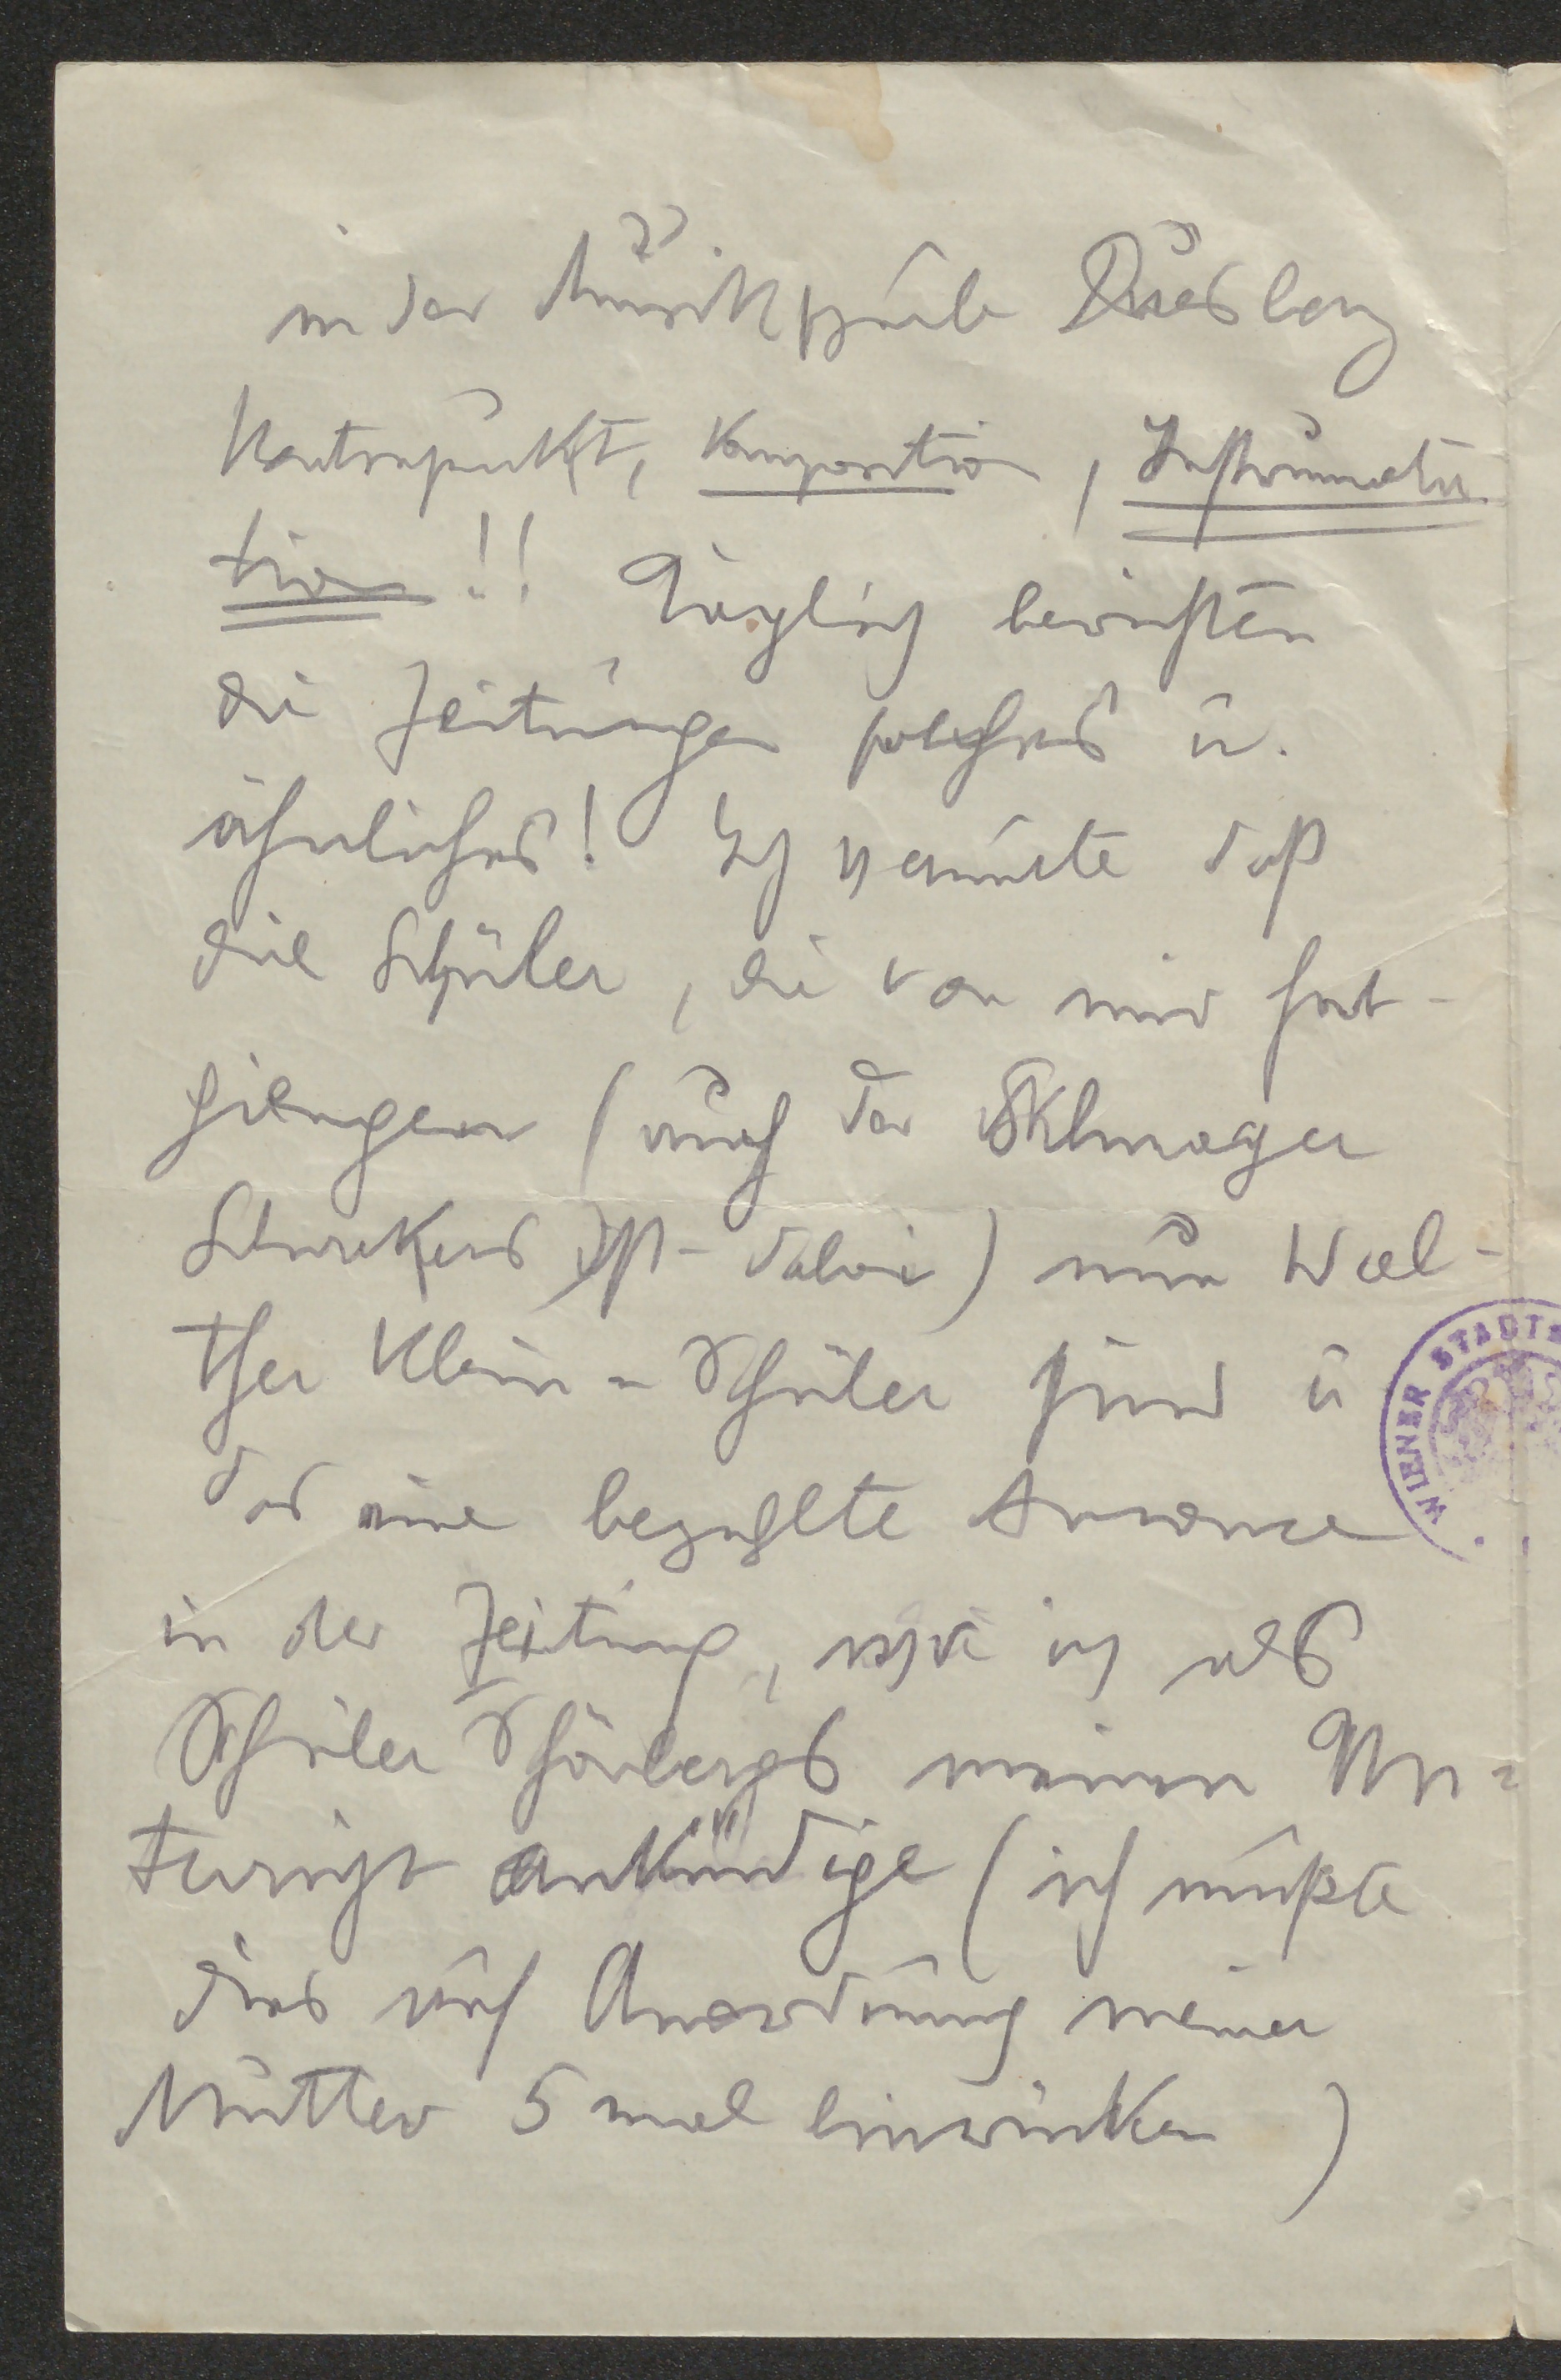 in der Musikschule Duesberg
Kontrapunkt, Komposition, Instrumenta
tion!! Täglich berichten
die Zeitungen solches u.
ähnliches! Ich vermute daß
die Schüler, die von mir fort-
giengen (auch der
Schrekers) nun Wal-
ther Klein-Schüler sind u
das eine bezahlte Annonce
in der Zeitung, wie ich als
Schüler Schönbergs meinen Un=
terricht ankündige (ich mußte
dies auf Anordnung meiner
Mutter 5 mal einrücken)
WIENER STADT